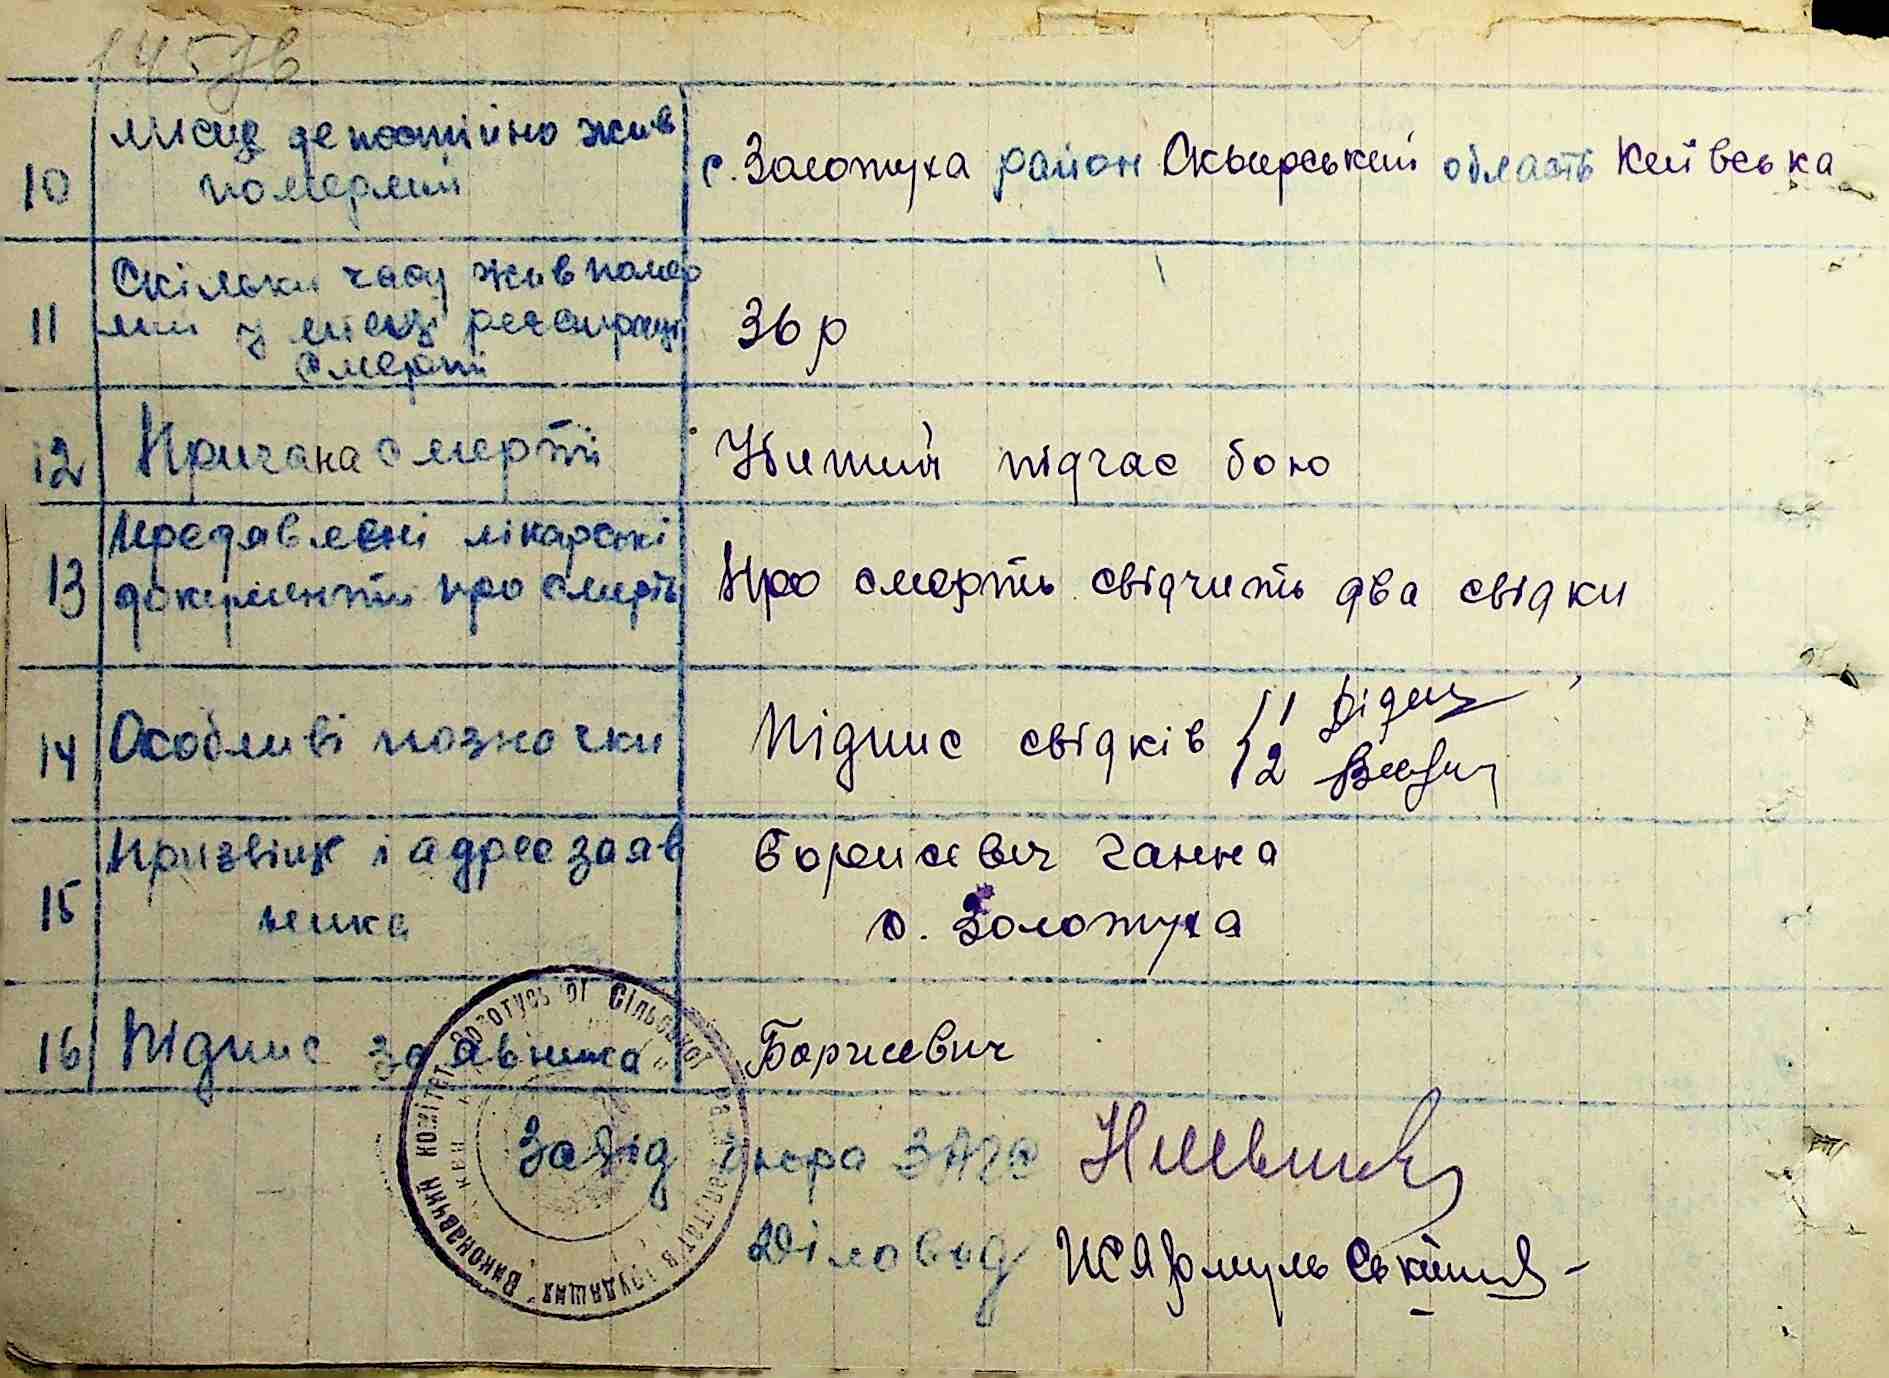 145зв
10 Місце де постійно жив
померлий
с. Золотуха район Сквирський область Київська
11 Скільки часу жив помер
лий у місці реєстрації
смерті
36 р
12 Причина смерті
Убитий підчас бою
13 Предявлені лікарські
документи про смерть
Про смерть свідчить два свідки
14 Особливі позначки
Підпис свідків 1
2
15 Прізвіще і адрес заяв
ника
Борисевич Ганна
с. Золотуха
16 Підпис заявника
Борисевич
Виконавчий комітет Золотуської Сільської Ради депутатів трудящих
Завід бюра ЗАГС
Діловод